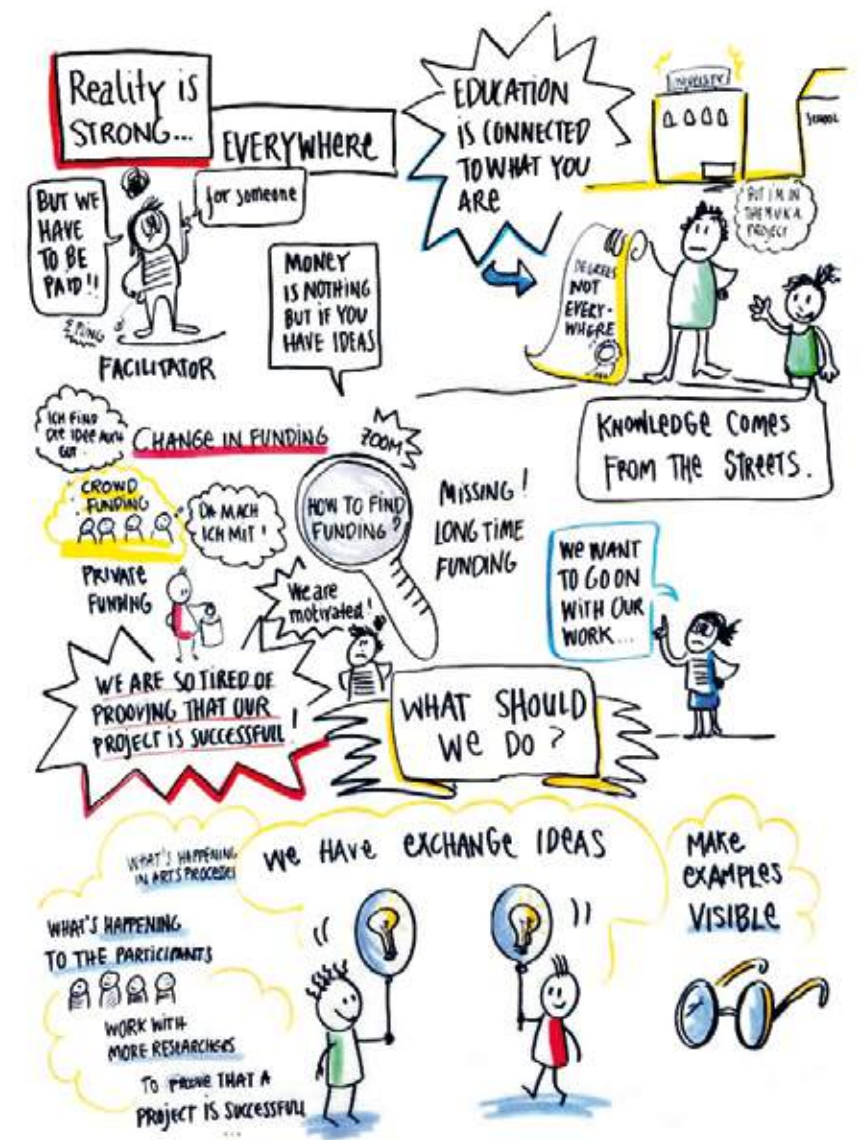 Reality is
STRONG...
EVERYWHERE
for someone
BUT WE
HAVE
TO BE
PAID!!
FACILITATOR
MONEY
IS NOTHING
BUT IF YOU
HAVE IDEAS
EDUCATION
IS CONNECTED
TO WHAT YOU
ARE
SCHOOL
BUT I'M IN
THE MUKA
PROJECT
DEGREES
NOT
EVERY-
WHERE
KNOWLEDGE COMES
FROM THE STREETS.
ICH FIND
DIE IDEE AUCH
GUT
CHANGE IN FUNDING
ZOOM
CROWD
FUNDING
DA MACH
ICH MIT!
HOW TO FIND
FUNDING?
MISSING!
LONG TIME
FUNDING
PRIVATE
FUNDING
We are
motivated!
WE WANT
TO GO ON
WITH OUR
WORK...
WE ARE SO TIRED OF
PROOVING THAT OUR
PROJECT IS SUCCESSFULL!
WHAT SHOULD
WE DO?
WHAT'S HAPPENING
IN ARTS PROCESSES
WE HAVE EXCHANGE IDEAS
MAKE
EXAMPLES
VISIBLE
WHAT'S HAPPENING
TO THE PARTICIPANTS
WORK WITH
MORE RESEARCHERS
TO PROVE THAT A
PROJECT IS SUCCESSFULL
...